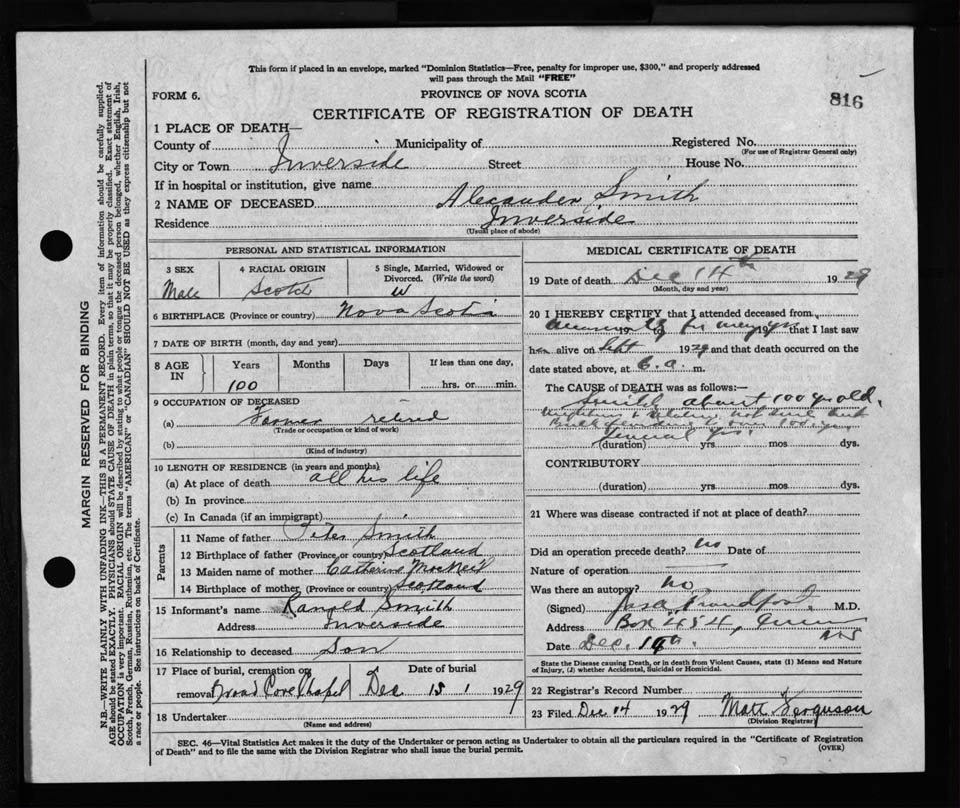 This form if placed in an envelope, marked "Dominion Statistics—Free, penalty for improper use, $300," and properly addressed
will pass through the Mail "FREE"
FORM 6.
PROVINCE OF NOVA SCOTIA
816
CERTIFICATE OF REGISTRATION OF DEATH
1 PLACE OF DEATH—
County of Municipality of Registered No.
(For use of Registrar General only)
City or Town Inverside Street House No.
If in hospital or institution, give name
2 NAME OF DECEASED Alexander Smith
Residence Inverside
(Usual place of abode)
PERSONAL AND STATISTICAL INFORMATION
3 SEX Male
4 RACIAL ORIGIN Scotch
5 Single, Married, Widowed or Divorced. (Write the word) W
6 BIRTHPLACE (Province or country) Nova Scotia
7 DATE OF BIRTH (month, day and year)
8 AGE IN Years Months Days If less than one day,
100 hrs. or min.
9 OCCUPATION OF DECEASED
(a) Farmer retired
(Trade or occupation or kind of work)
(b)
(Kind of industry)
10 LENGTH OF RESIDENCE (in years and months)
(a) At place of death all his life
(b) In province
(c) In Canada (if an immigrant)
Parents
11 Name of father Peter Smith
12 Birthplace of father (Province or country) Scotland
13 Maiden name of mother Catherine MacNeil
14 Birthplace of mother (Province or country) Scotland
15 Informant's name Ranald Smith
Address Inverside
16 Relationship to deceased Son
17 Place of burial, cremation or Date of burial
removal Broad Cove Chapel Dec 15 1929
18 Undertaker
(Name and address)
MEDICAL CERTIFICATE OF DEATH
19 Date of death Dec 14th 1929
(Month, day and year)
20 I HEREBY CERTIFY that I attended deceased from
19 for many yrs 19 that I last saw
h alive on Sept 1929 and that death occurred on the
date stated above, at 6.a. m.
The CAUSE of DEATH was as follows:—
about 100 yr old,
not sure but
General
(duration) yrs. mos dys.
CONTRIBUTORY
(duration) yrs mos dys.
21 Where was disease contracted if not at place of death?
Did an operation precede death? no Date of
Nature of operation
Was there an autopsy? no
(Signed) M.D.
Address Box 454,
NS
Date Dec. 18th.
State the Disease causing Death, or in death from Violent Causes, state (1) Means and Nature
of Injury, (2) whether Accidental, Suicidal or Homicidal.
22 Registrar's Record Number
23 Filed Dec 14 1929 Matt Ferguson
(Division Registrar)
SEC. 46—Vital Statistics Act makes it the duty of the Undertaker or person acting as Undertaker to obtain all the particulars required in the "Certificate of Registration
of Death" and to file the same with the Division Registrar who shall issue the burial permit.
(OVER)
MARGIN RESERVED FOR BINDING
N.B.—WRITE PLAINLY WITH UNFADING INK—THIS IS A PERMANENT RECORD. Every item of information should be carefully supplied.
AGE should be stated EXACTLY. PHYSICIANS should STATE CAUSE OF DEATH in plain terms, so that it may be properly classified. Exact statement of
OCCUPATION is very important. RACIAL ORIGIN will be described by stating to what people or tongue the deceased person belonged, whether English, Irish,
Scotch, French, German, Russian, Ruthenian, etc. The terms "AMERICAN" or "CANADIAN" SHOULD NOT BE USED as they express citizenship but not
a race or people. See instructions on back of Certificate.